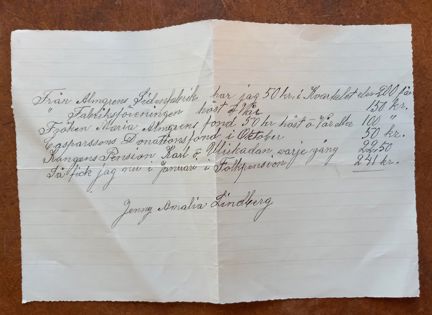 Från Almgrens Sidenfabrik har jag 50 kr. i Kvartalet 200 kr
" Fabriksföreningen höst o Vår 150 kr.
Fröken Maria Almgrens fond 50 kr höst o Vår 100 "
Casparssons Donationsfond i Oktober. 50 kr.
Kungens Pension Karl varje gång 22.50
Så fick jag nu i januari i Folkpension 241 kr.
Jenny Amalia Lindberg